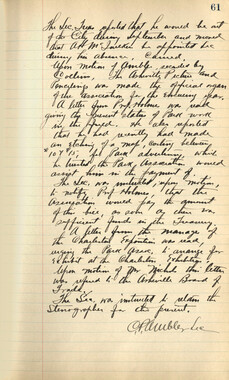 61
The Sec. Treas. reported that he would be out
of the City during September and moved
that A.H. McQueen be appointed Sec
during his absence. Carried.
Upon motion of Ambler seconded by
the Asheville Citizen and
was made the official organ
of the Association for the ensuing year.
A letter from Prof. Holmes was read
giving the present status of Park work
He also reported
that he had recently had made
an etching of a map, costing between
for Park advertising, which
he trusted the Park Association would
assist him in the payment of.
The Sec. was instructed, upon motion,
to notify Prof. Holmes, that the
Association would pay the amount
of the bill, as soon as there was
sufficient funds in the Treasury.
A letter from the manager of
the Charleston Exposition was read,
urging the Park Assoc. to arrange for
exhibit at the Charleston Exhibition.
Upon motion of Mr. Nichols this letter
was referred to the Asheville Board of
Trade.
The Sec. was instructed to retain the
Stenographer for the present.
C.P. Ambler Sec